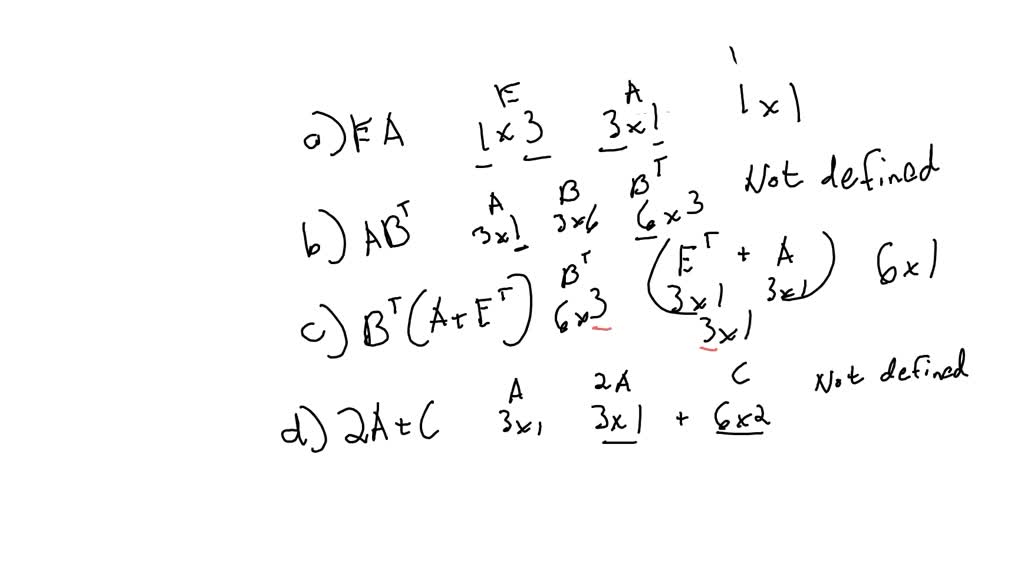 a) EA E 1x3 A 3x1 1x1
b) AB^T A 3x1 B 3x6 B^T 6x3 Not defined
c) B^T(A+E^T) B^T 6x3 (E^T + A) 3x1 3x1 6x1
3x1
d) 2A+C A 3x1 2A 3x1 + C 6x2 Not defined